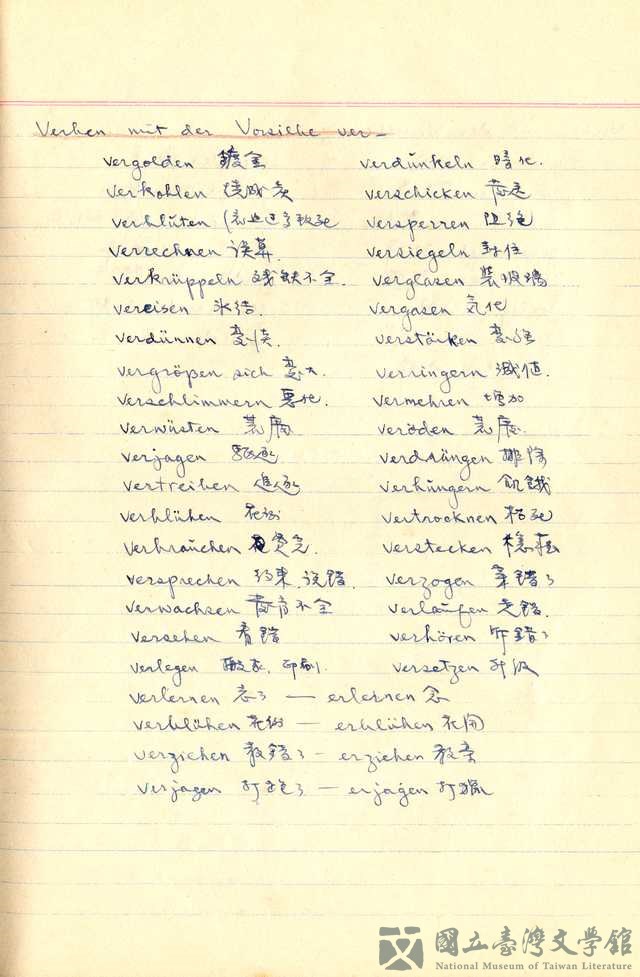 Verben mit der Vorsilbe ver-
vergolden 鍍金 verdunkeln 暗化.
verkohlen 燒成炭 verschicken 發送
verbluten versperren 阻絕
verrechnen 误算. versiegeln 封住
verkrüppeln 残缺不全. verglasen 裝玻璃
vereisen 氷结. vergasen 気化
verdünnen verstärken 变强
vergrößen sich 变大. verringern 減值.
verschlimmern 悪化. vermehren 增加
verwüsten 荒廃 veröden 荒廃.
verjagen 駆逐 verdrängen 排除
vertreiben 進逐 verhüngern 飢餓
verblühen 花谢 vertrocknen 枯死
verbrauchen 費完. verstecken 隐藏
versprechen 约束, 说错. verzogen
verwachsen 發育不全 verlaufen 走错.
versehen 看错 verhören 听錯了
verlegen 搬家, 印刷. versetzen 升级
verlernen 忘了 — erlernen 念
verblühen 花谢 — erblühen 花開
verziehen 教錯了 — erziehen 教育
verjagen 打跑了 — erjagen 打獵
國立臺灣文學館
National Museum of Taiwan Literature